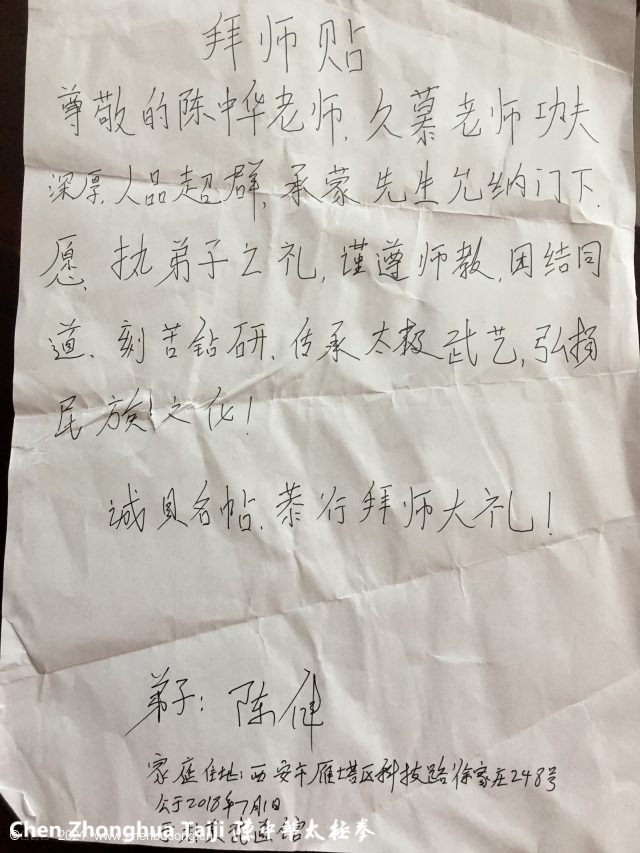 拜师贴
尊敬的陈中华老师,久慕老师功夫
深厚,人品超群,承蒙先生允纳门下.
愿、执弟子之礼,谨遵师教,团结同
道、刻苦钻研、传承太极武艺,弘扬
民族文化!
诚具名帖、恭行拜师大礼!
弟子:陈健
家庭住址:西安市雁塔区科技路徐家庄248号
公于2018年7月1日
Chen Zhonghua Taiji 陈中华太极拳